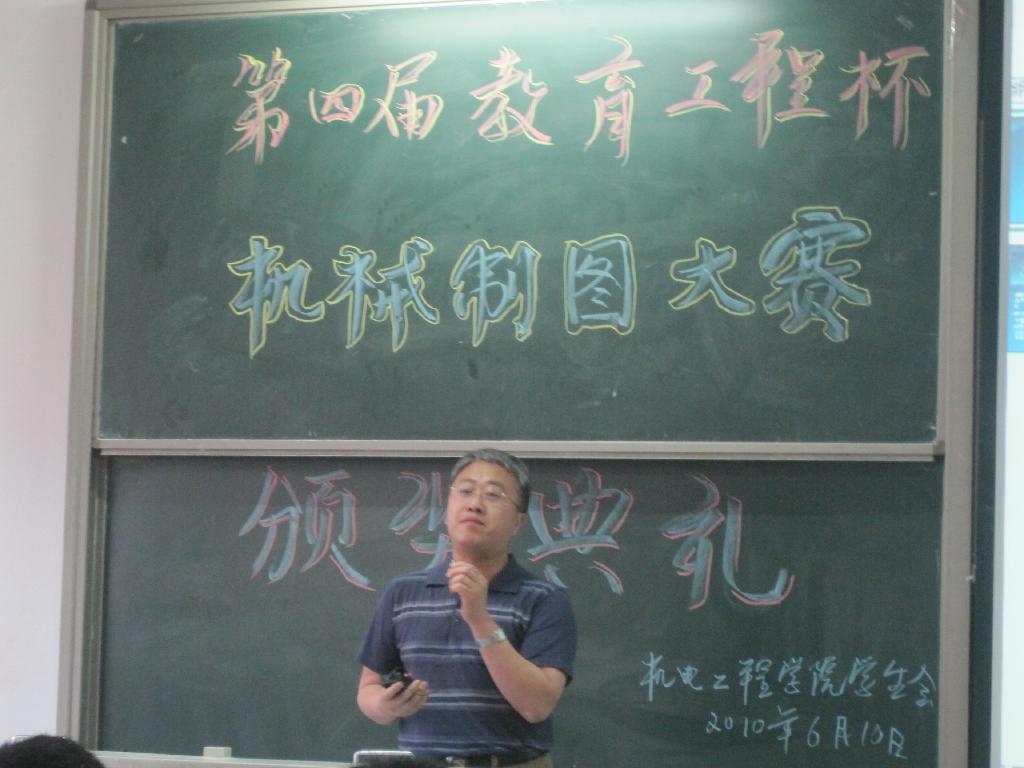 第四届教育工程杯
机械制图大赛
颁奖典礼
机电工程学院学生会
2010年6月10日